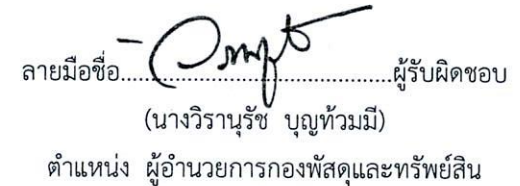 ลายมือชื่อ................................................ผู้รับผิดชอบ
(นางวิรานุรัช บุญท้วมมี)
ตำแหน่ง ผู้อำนวยการกองพัสดุและทรัพย์สิน